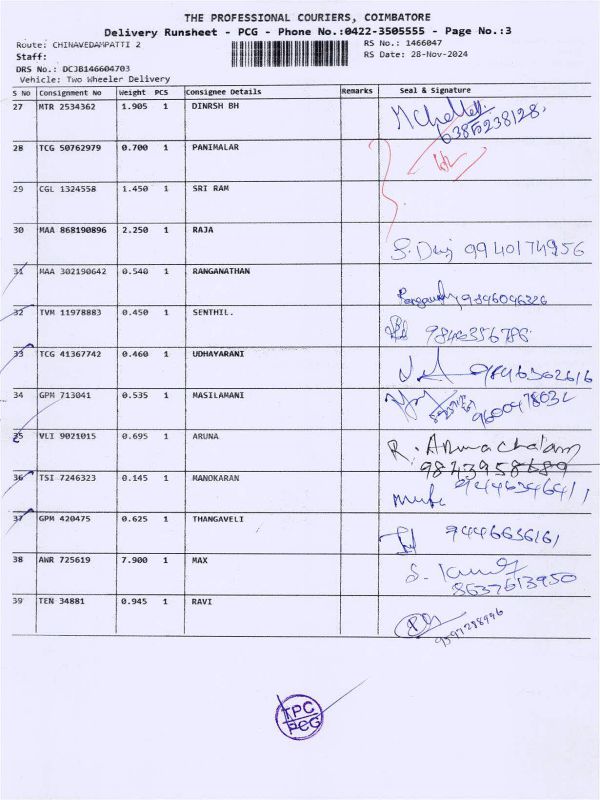 THE PROFESSIONAL COURIERS, COIMBATORE
Delivery Runsheet - PCG - Phone No.:0422-3505555 - Page No.:3
Route: CHINAVEDAMPATTI 2 RS No.: 1466047
Staff: RS Date: 28-Nov-2024
DRS No.: DCJB146604703
Vehicle: Two Wheeler Delivery
S No Consignment No Weight PCS Consignee Details Remarks Seal & Signature
27 MTR 2534362 1.905 1 DINRSH BH
6385238128
28 TCG 50762979 0.700 1 PANIMALAR
29 CGL 1324558 1.450 1 SRI RAM
30 MAA 868190896 2.250 1 RAJA
9940174956
31 MAA 302190642 0.540 1 RANGANATHAN
9846046326
32 TVM 11978883 0.450 1 SENTHIL.
9846356786
33 TCG 41367742 0.460 1 UDHAYARANI
9846362616
34 GPM 713041 0.535 1 MASILAMANI
35 VLI 9021015 0.695 1 ARUNA R. Arunachalam
9843958689
36 TSI 7246323 0.145 1 MANOKARAN
37 GPM 420475 0.625 1 THANGAVELI
9446636161
38 AWR 725619 7.900 1 MAX
8637613950
39 TEN 34881 0.945 1 RAVI
9597288996
TPC
PCG